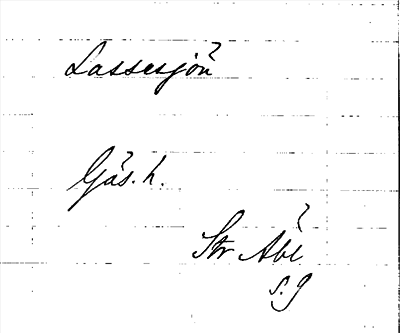 Lassesjön
Gås. h.
Str Åbl
s. g